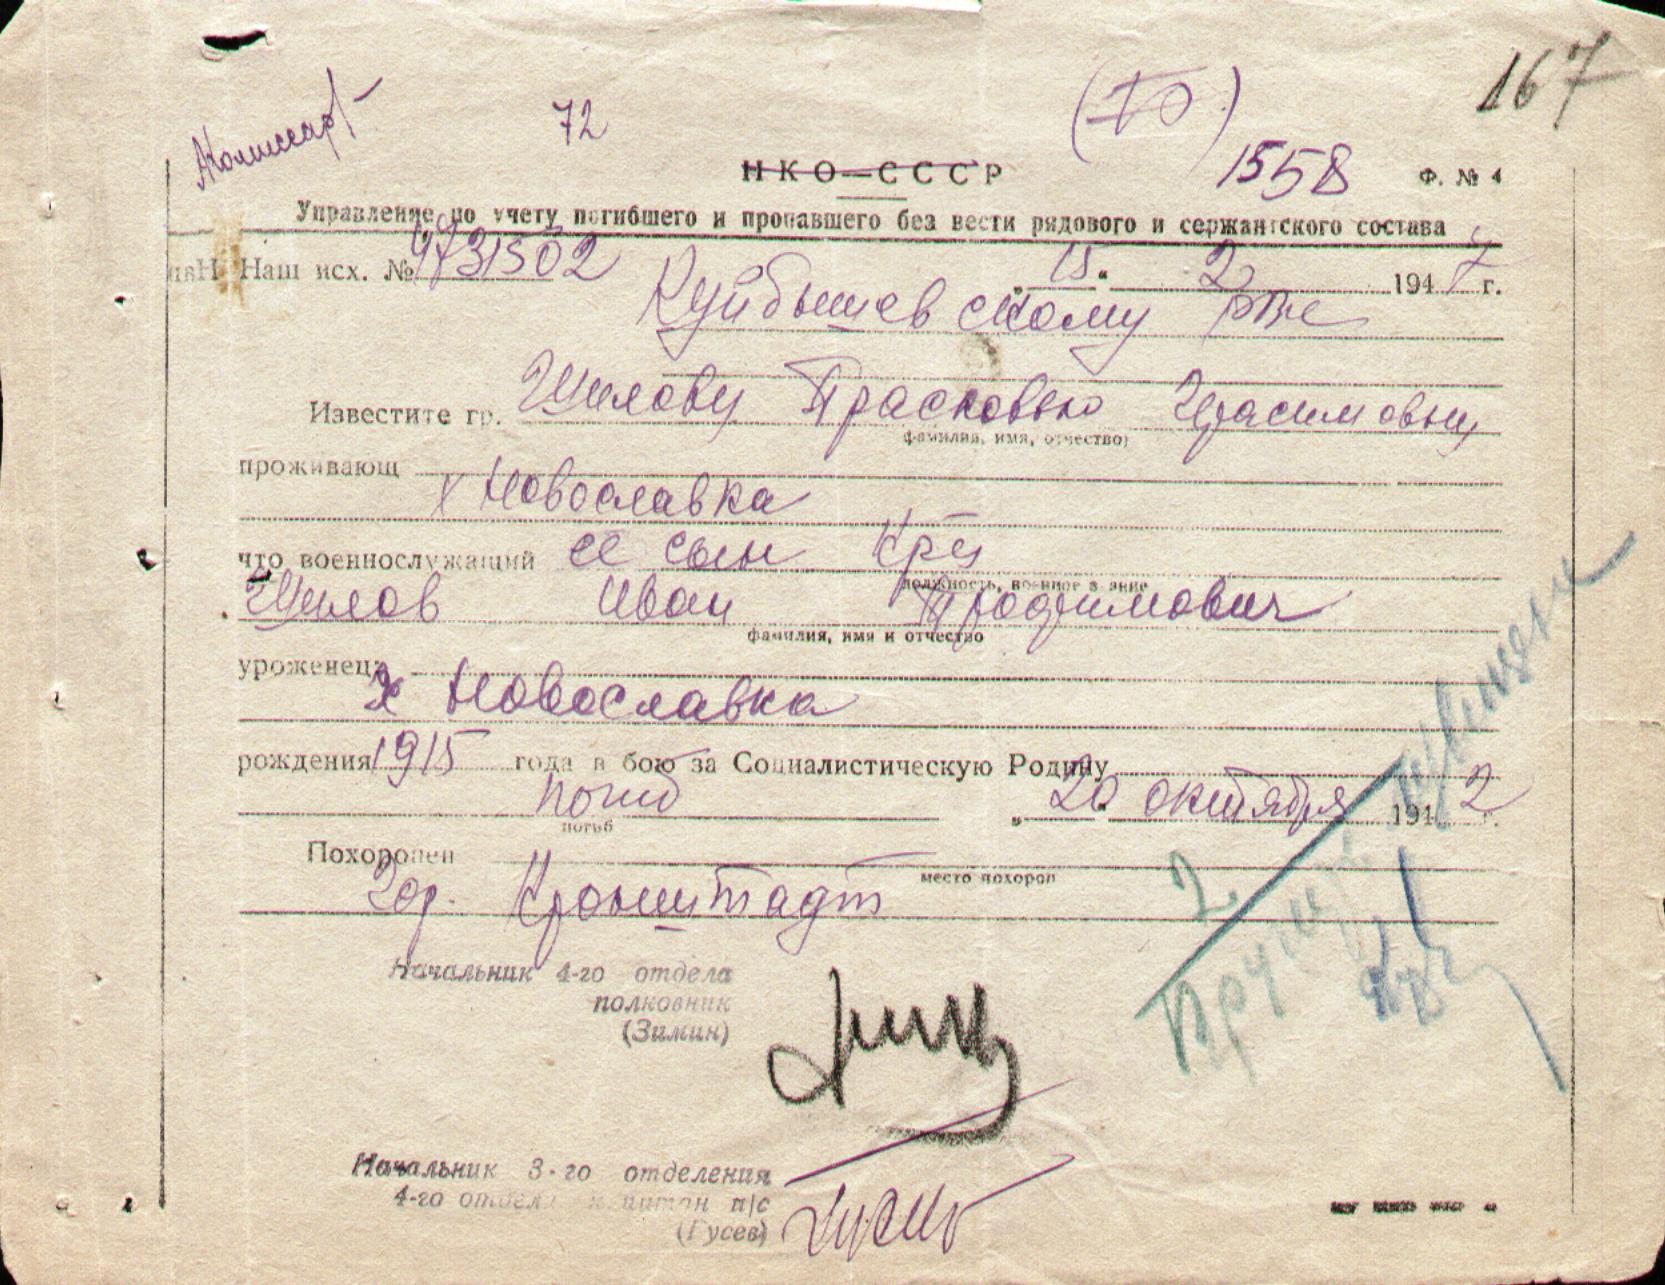 167
72
1558
НКО—СССР
Ф. № 4
Управление по учету погибшего и пропавшего без вести рядового и сержантского состава
Наш исх. № 15" 2 1947 г.
Куйбышевскому рвк
Известите гр. Шилову Прасковью Герасимовну
(фамилия, имя, отчество)
проживающ
х Новославка
что военнослужащий ее сын кр-ц
должность, военное звание
Шилов Иван Трофимович
фамилия, имя и отчество
уроженец
х Новославка
рождения 1915 года в бою за Социалистическую Родину
погиб „20 октября 1942 г.
погиб
Похоронен
место похорон
Гор. Кронштадт
2
Начальник 4-го отдела
полковник
(Зимин)
Начальник 3-го отделения
4-го отдела капитан а/с
(Гусев)